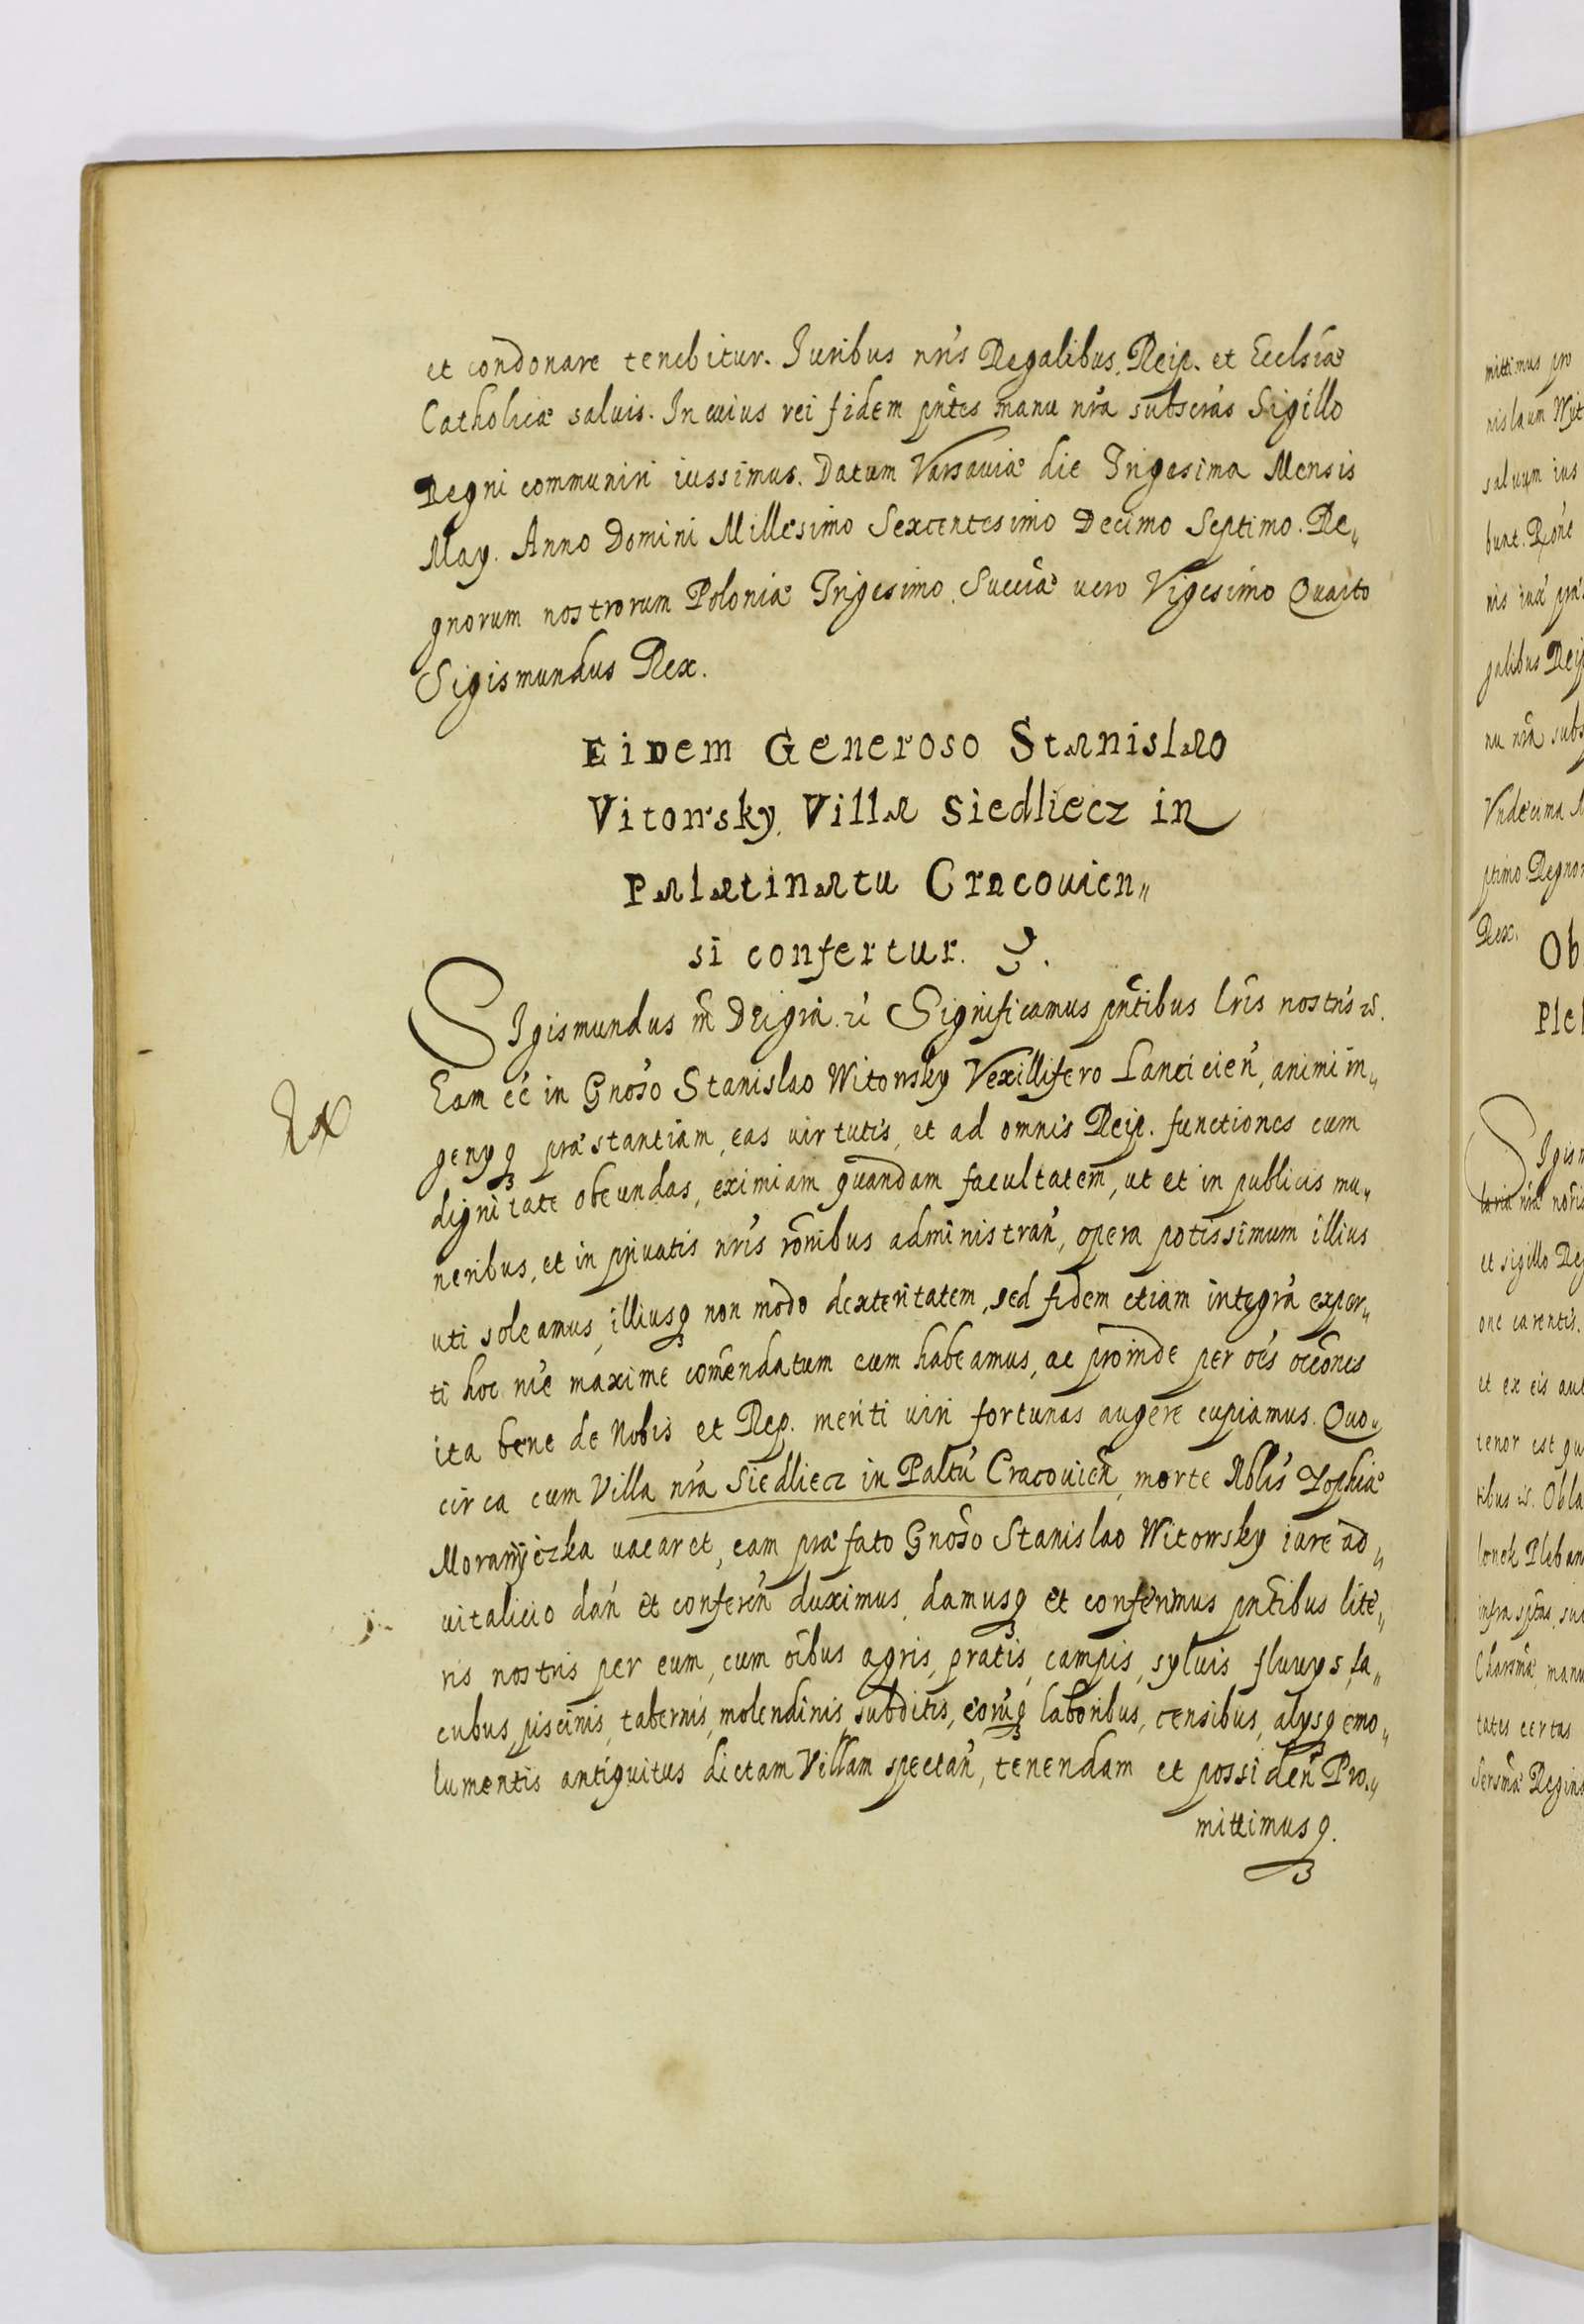 et condonare tenebitur. Iuribus nris Regalibus, Reip. et Ecclsiæ
Catholicæ saluis. In cuius rei fidem pntes manu nra subscras Sigillo
Regni communiri iussimus. Datum Varsauiæ die Trigesima Mensis
May. Anno Domini Millesimo Sexcentesimo Decimo Septimo. Re„
gnorum nostrorum Poloniæ Trigesimo, Sueciæ uero Vigesimo Quarto
Sigismundus Rex.
Eidem Generoso Stanislao
Vitowsky, Villa Siedliecz in
Palatinatu Cracouien„
si confertur.
Sigismundus m Dei gra. Significamus pntibus lris nostris
Eam ee in Gnoso Stanislao Witowsky Vexillifero Lancicien, animi in„
genyq præstantiam, eas uirtutis, et ad omnis Reip. functiones cum
dignitate obeundas, eximiam quandam facultatem, ut et in publicis mu„
neribus, et in priuatis nris ronibus administran, opera potissimum illius
uti soleamus, illiusq non modo dexteritatem, sed fidem etiam integra exper„
ti hoc maxime comendatum eum habeamus, ac proinde per oes occones
ita bene de Nobis et Rep. meriti uiri fortunas augere cupiamus. Quo„
circa cum Villa nra Siedliecz in Paltu Cracouien, morte Nblis Zophiæ
uacaret, eam præfato Gnoso Stanislao Witowsky iure ad„
uitalicio dan et conferen duximus, damusq et conferimus pntibus lite„
ris nostris per eum, cum oibus agris, pratis, campis, syluis fluuys, la„
cubus, piscinis, tabernis, molendinis, subditis, eoruq laboribus, censibus, alysq emo„
lumentis antiquitus dictam Villam spectan, tenendam et possiden Pro„
mittimusq.
mittimus pro
salvum ius
galibus Reip
Vndecima
ptimo Regnor
Rex.
Ob
Ple
et sigillo Reg
et ex eis aut
tenor est
tates certas